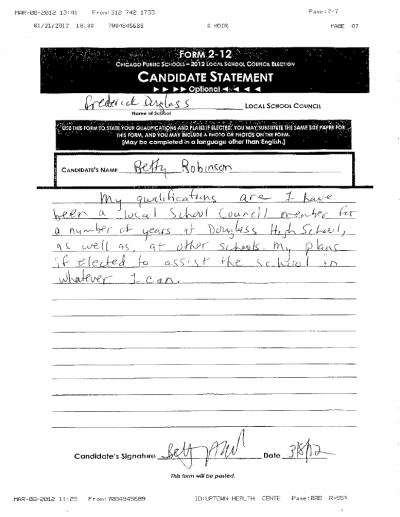 MAR-08-2012 13:41 From:312 742 1733 Page:7/7
01/21/2012 18:30 7084845689 G MOIR PAGE 07
FORM 2-12
CHICAGO PUBLIC SCHOOLS – 2012 LOCAL SCHOOL COUNCIL ELECTION
CANDIDATE STATEMENT
►►►► Optional ◄◄◄◄
Frederick Douglass LOCAL SCHOOL COUNCIL
Name of School
USE THIS FORM TO STATE YOUR QUALIFICATIONS AND PLANS IF ELECTED. YOU MAY SUBSTITUTE THE SAME SIZE PAPER FOR
THIS FORM, AND YOU MAY INCLUDE A PHOTO OR PHOTOS ON THE FORM.
[May be completed in a language other than English.]
CANDIDATE'S NAME Betty Robinson
My qualifications are I have
been a local School Council member for
a number of years at Douglass High School,
as well as, at other schools. My plans
if elected to assist the school in
whatever I can.
Candidate's Signature Date 3/8/12
This form will be posted.
MAR-08-2012 11:25 From:7084845689 ID:UPTOWN HEALTH CENTE Page:008 R=95%